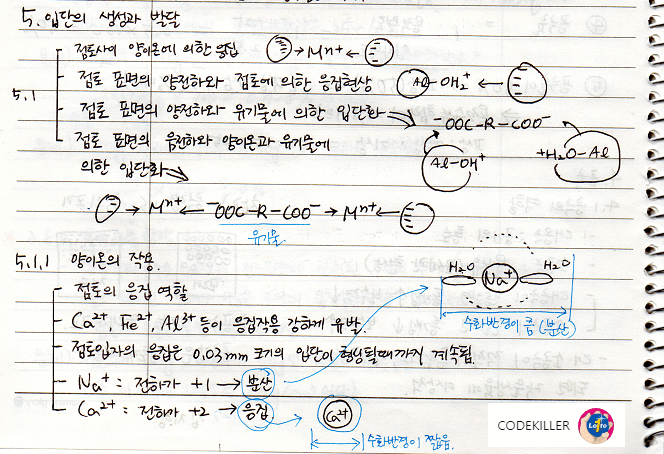 5. 입단의 생성과 발달
5.1
점토사이 양이온에 의한 응집 ⊖→Mn+←⊖
점토 표면의 양전하와 점토에 의한 응집현상 Al-OH₂⁺ ←
점토 표면의 양전하와 유기물에 의한 입단화 ⁻OOC-R-COO⁻
점토 표면의 음전하와 양이온과 유기물에
의한 입단화
Al-OH⁺ +H₂O-Al
→ Mⁿ⁺ ← ⁻OOC-R-COO⁻ → Mⁿ⁺ ←
유기물
5.1.1 양이온의 작용.
점토의 응집 역할
H₂O Na⁺ H₂O
수화반경이 큼 (분산)
Ca²⁺, Fe²⁺, Al³⁺ 등이 응집작용 강하게 유발.
점토입자의 응집은 0.03mm 크기의 입단이 형성될때까지 계속됨.
Na⁺ : 전하가 +1 → 분산
Ca²⁺ : 전하가 +2 → 응집 → Ca²⁺
수화반경이 짧음.
CODEKILLER Lotto